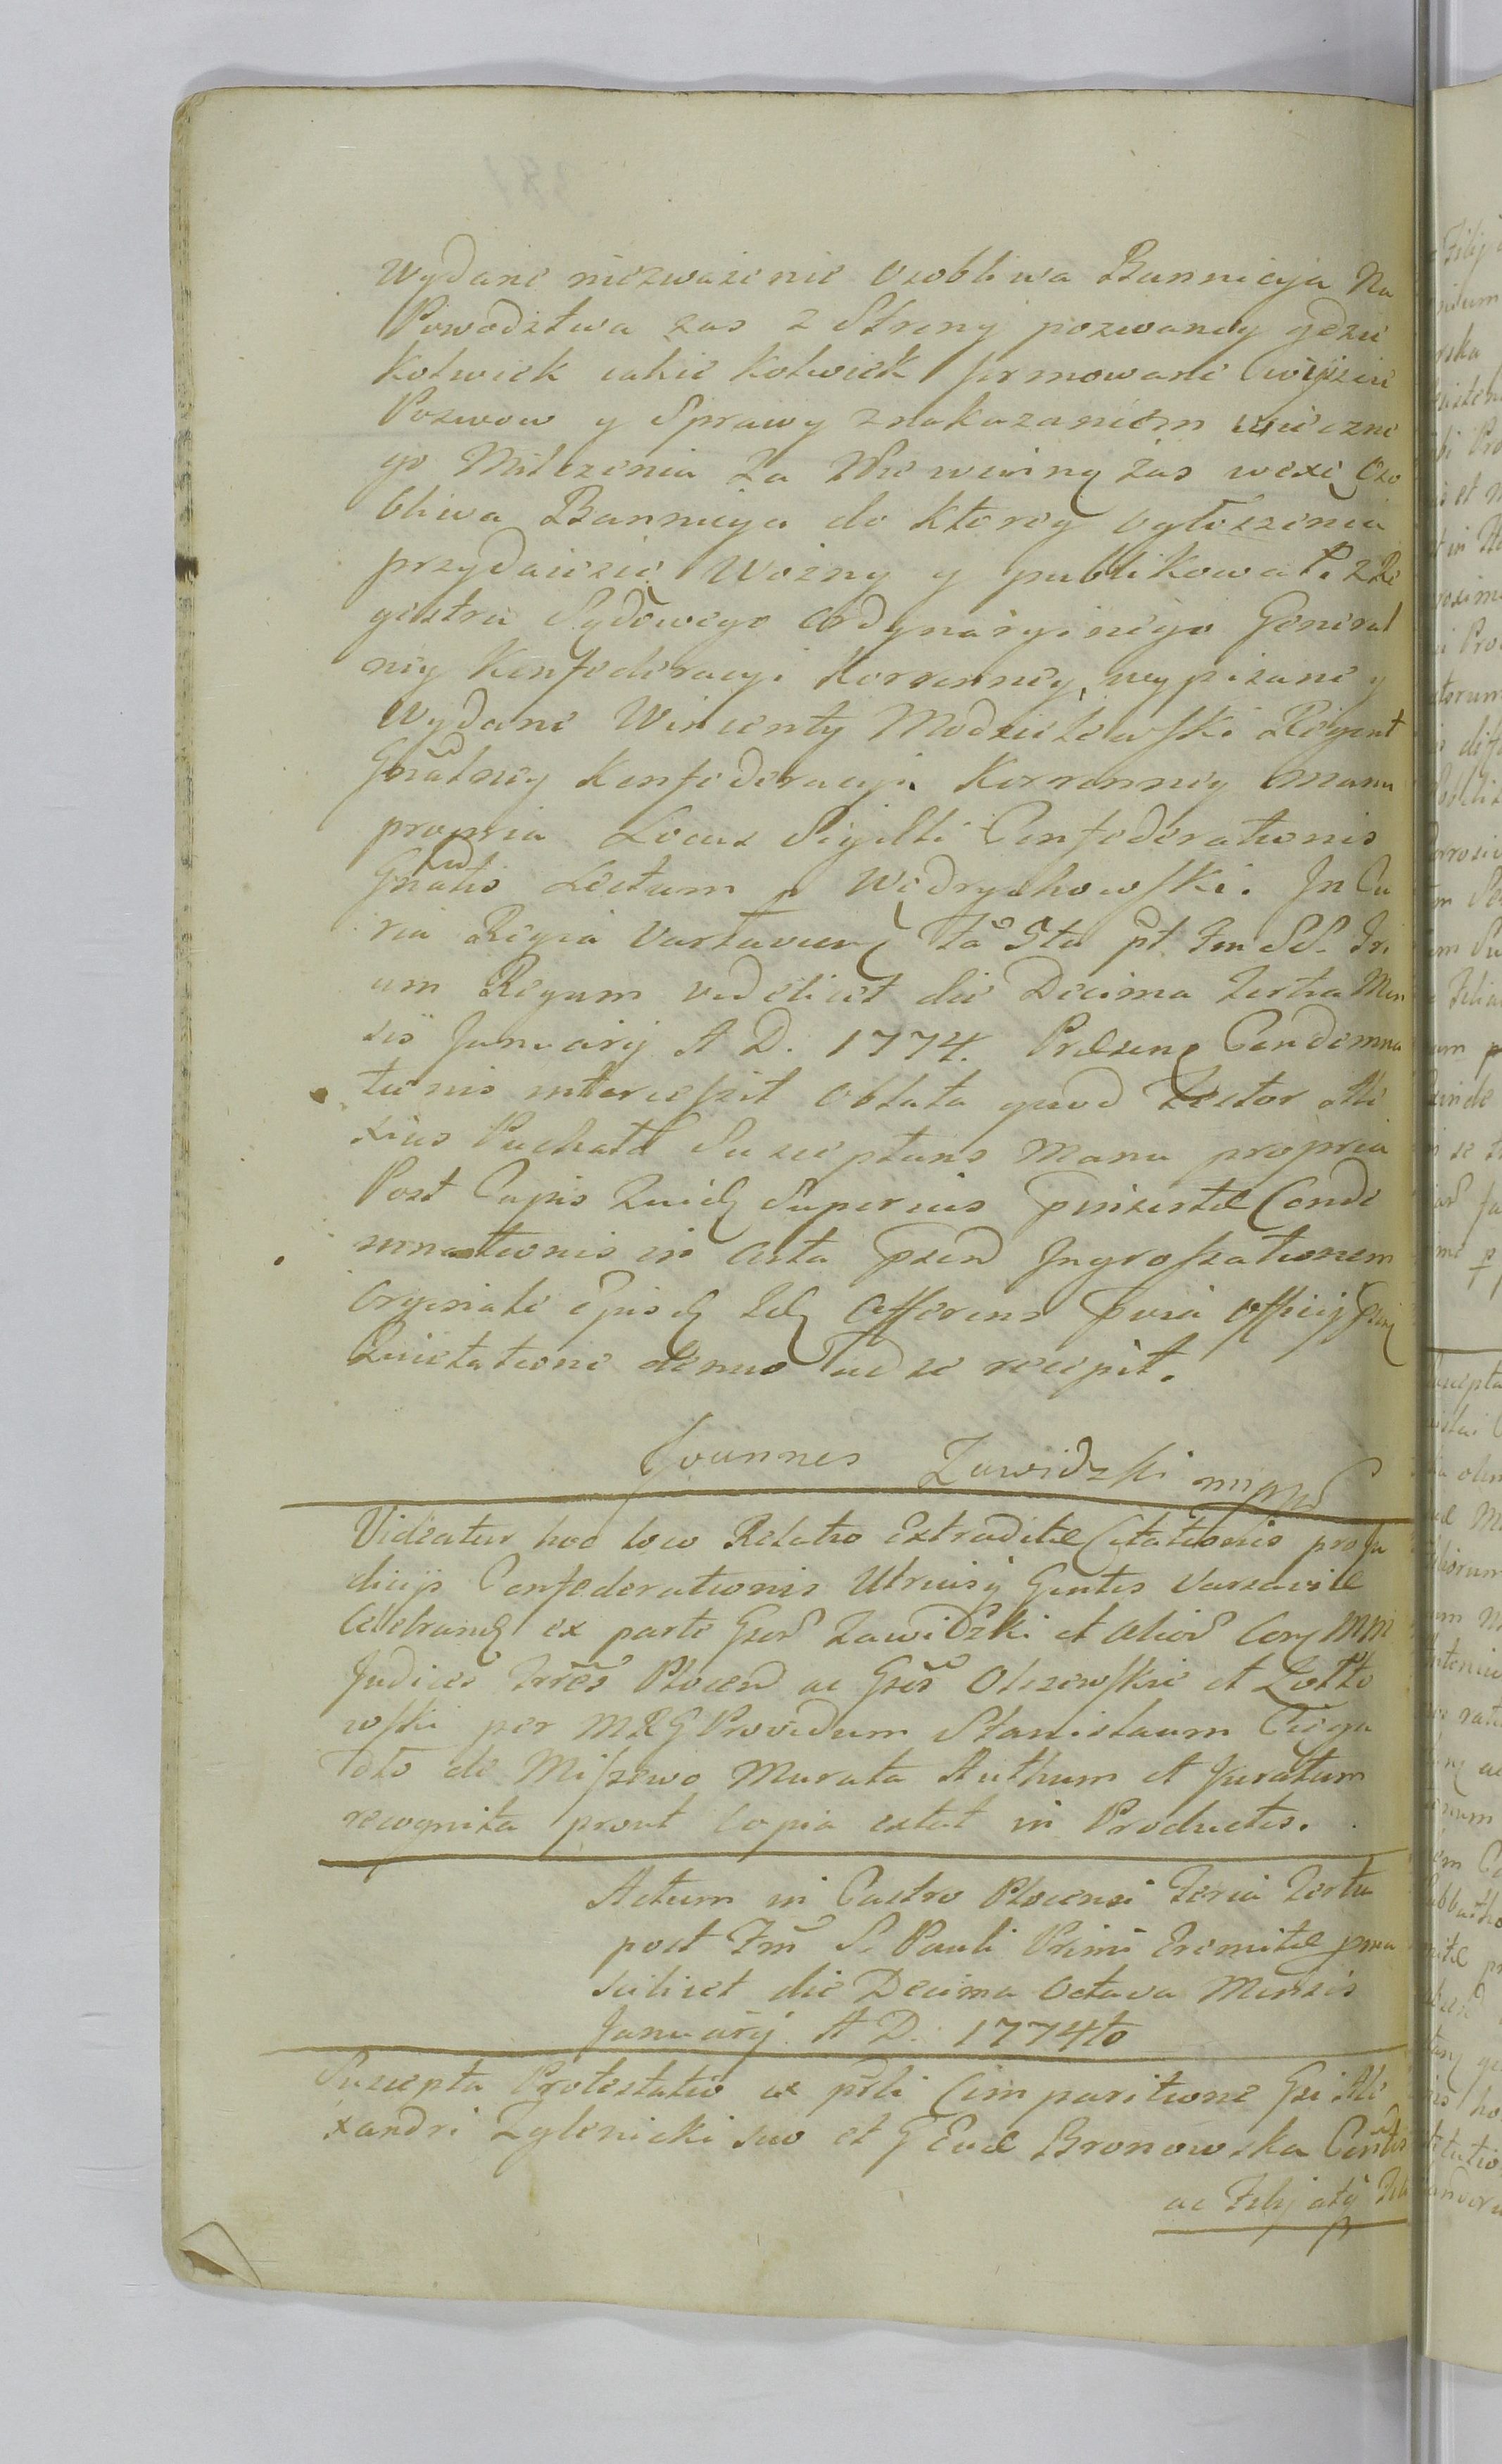 wydane niezważenie osobliwa Bannicya Na
Powodztwa zas z Strony pozwaney gdzie
kolwiek iakie kolwiek formowane
Pozwow y Sprawy znakazaniem wieczne
go Milczenia Za Nie winny zas wexę Oso
bliwa Bannicya do ktorey ogłoszenia
przydaiesie Wozny y publikował. z Re
gestru Sądowego ordynaryinego General
ney Konfederacyi Koronney, wypisane y
wydane Wincenty Modzielewski Regent
Gnalney Konfederacyi Koronney manu
propria Locus Sigilli Confederationis
Gnalis Lectum p Wędrychowski. In Cu
ria Regia Varsavien fa 5ta pt. Fm SS. Tri
um Regum videlicet die Decima Tertia Men
sis January A D. 1774. Præsens Condemna
tionis intercessit oblata quod Lector Ale
xius Puchata Suscceptans manu propria
Post Cujus Quid Superius Pinsertæ Conde
mnationis in Acta Psen Ingrossationem
Originale Ipis Idq Offerens Psia Officij Psen
Quietatione denuo ad se recepit.
Joannes Zawidzki mppd
Videatur hoc loco Relatio Extraditæ Citationis pro Ju
dicijs Confederationis Utriusq Gentis Varsaviæ
Celebrand ex parte Gsor Zawidzki et alior Conj MM
Judices Trres Plocen ac Gser Olszewskie et Zołto
wski per MRG Providum Stanislaum Ciega
dło de Miszewo Murata Authum et Juratum
recognita prout Copia extat in Productis.
Actum in Castro Plocensi Feria Tertia
post Fm S. Pauli Primi Eremitæ prma
scilicet die Decima Octava Mensis
January A D. 1774to
Suscepta Protestatio ex psli Comparitione Gsi Ale
xandri Zglenicki suo et G Evæ Bronowska Contis
ac Felij